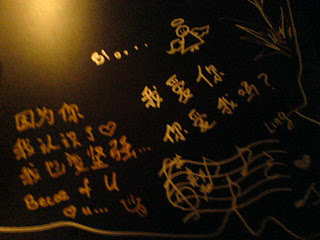 Blo....
我爱你
你爱我吗?
Ling
因为你
我认识了♡
我也变坚强...
Becoz of U
♡ u...